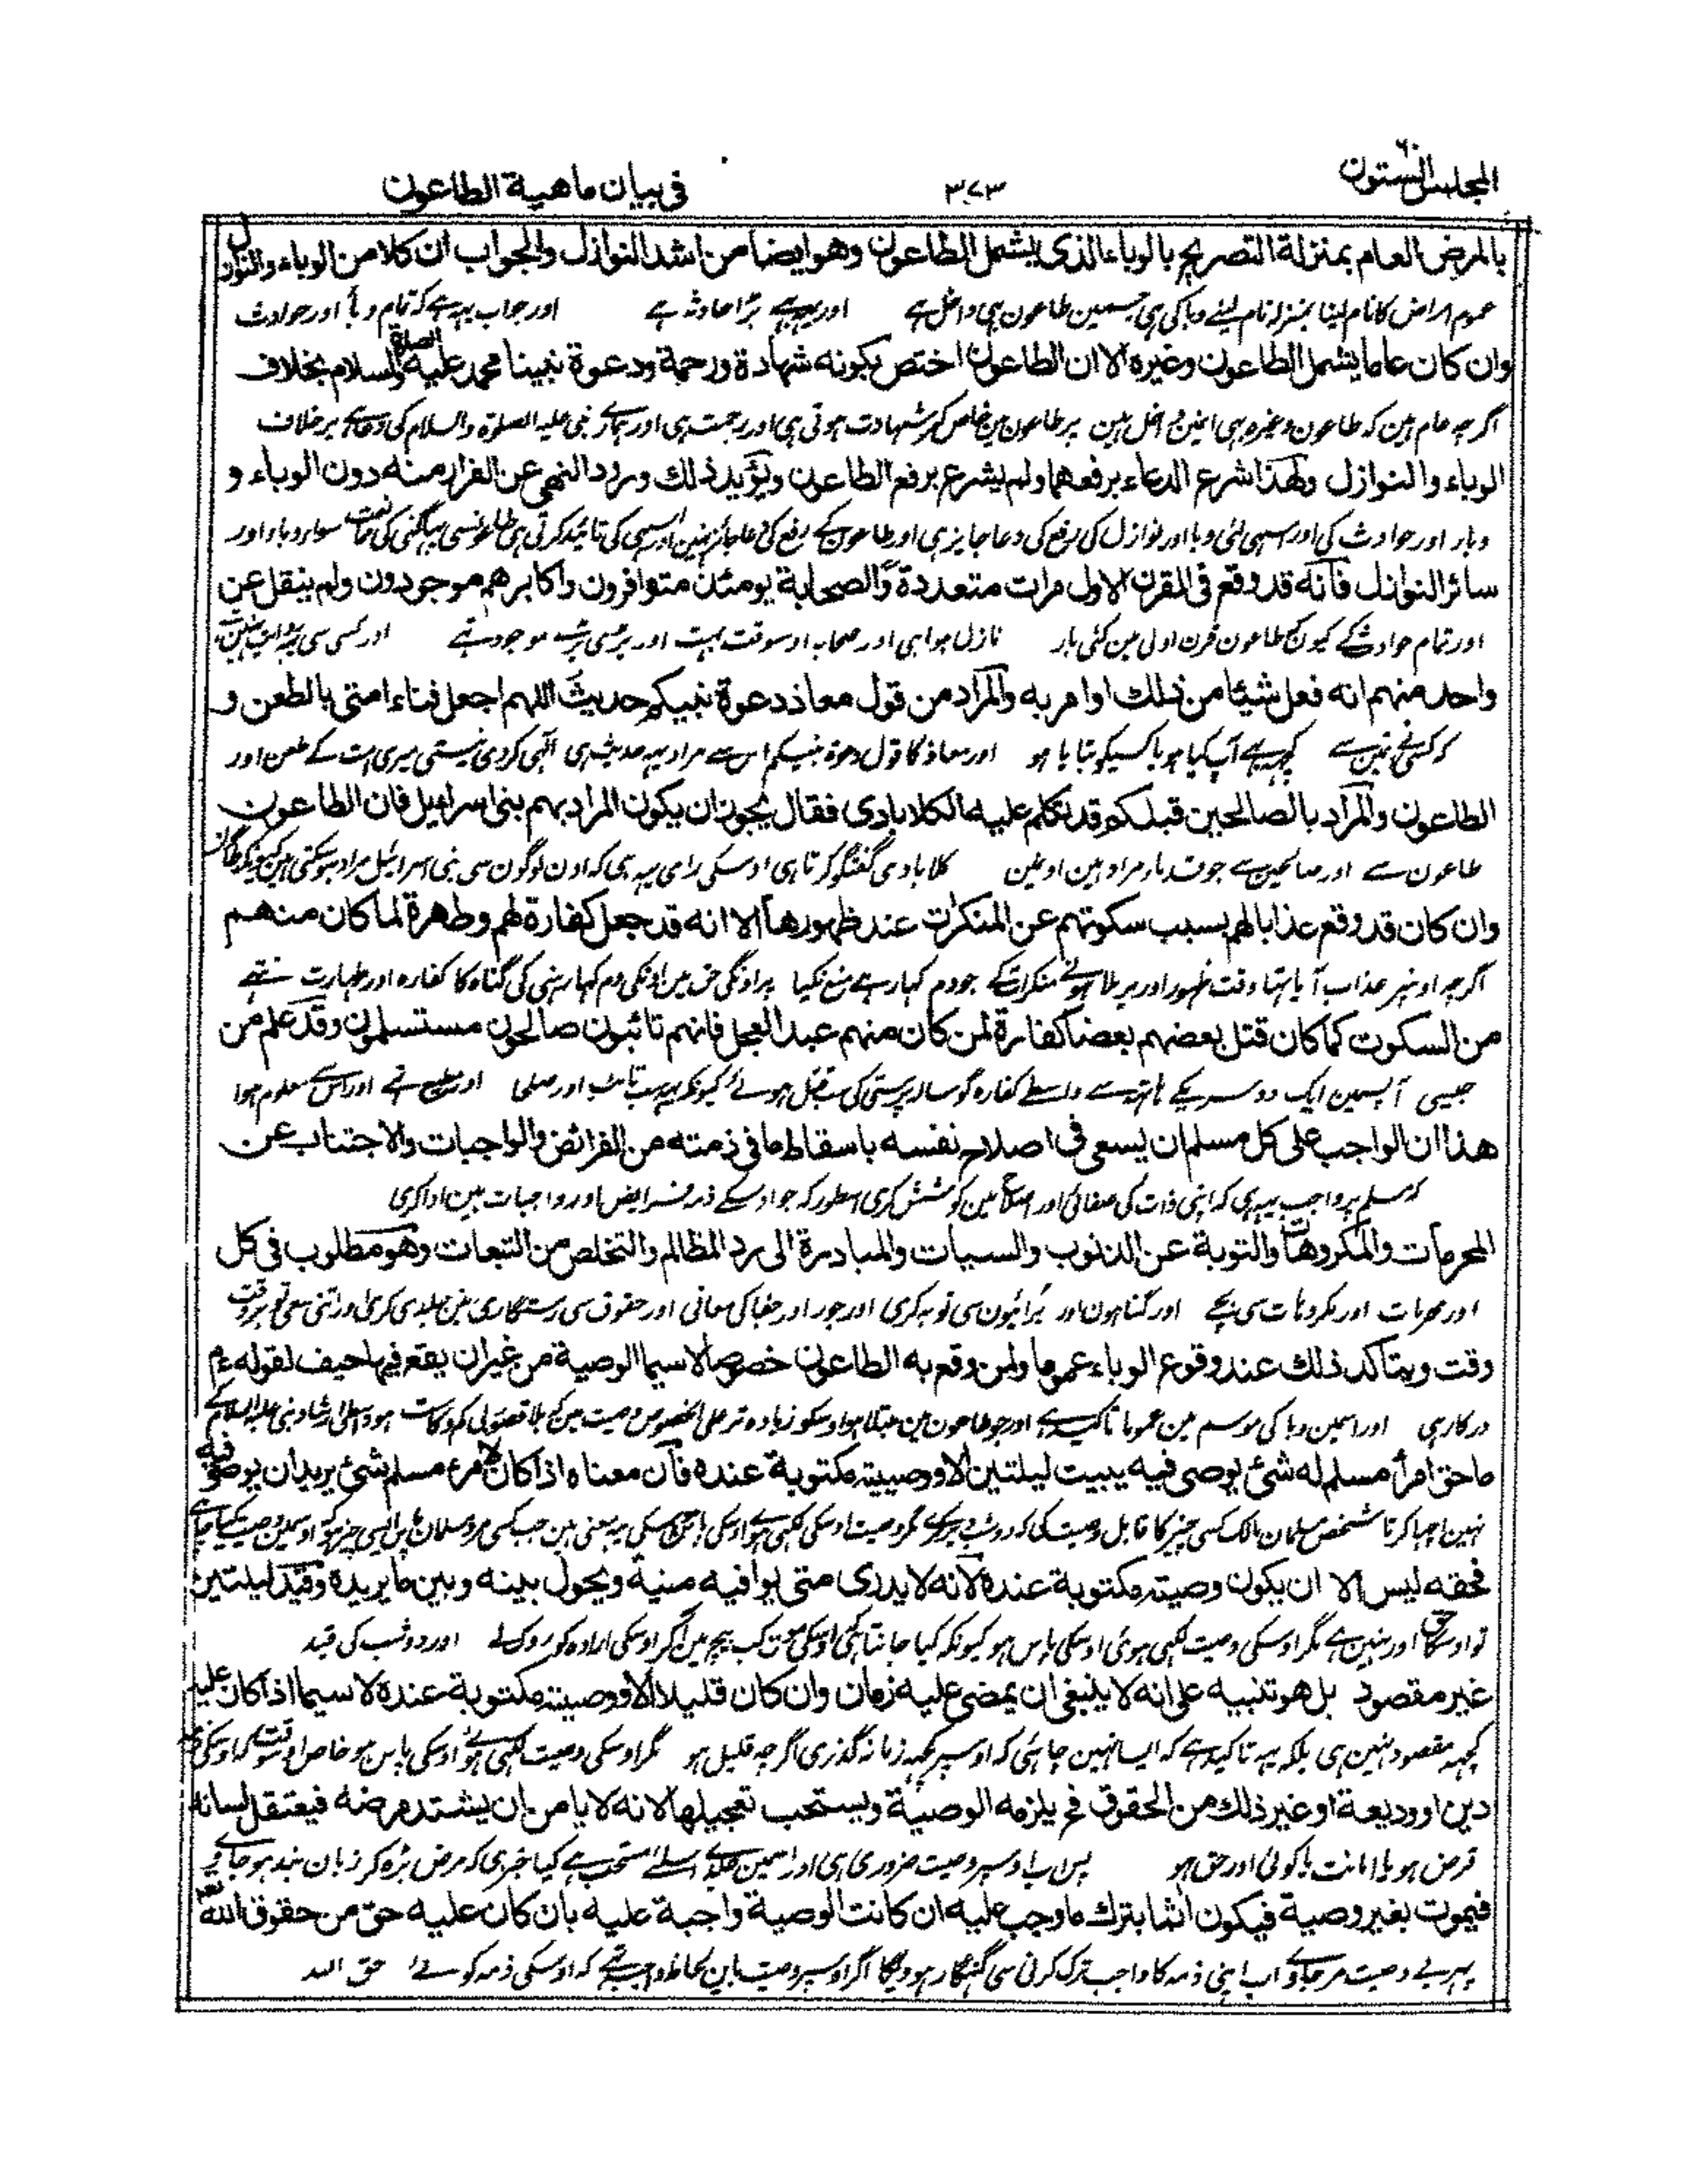 المجلس الستون ٦٠
٣٧٣
فی بیان ماهیة الطاعون
بالمرض العام بمنزلة التصریح بالوباء الذی یشمل الطاعون وهو ایضا من اشد النوازل والجواب ان کلا من الوباء والنوازل
عموم امراض کا نام لینا بمنزلہ نام لینے وبا کی ہی جسمین طاعون بھی داخل ہے اور یہ بھی بڑا حادثہ ہے اور جواب یہہ ہے کہ تمام وبا اور حوادث
وان کان عاما یشمل الطاعون وغیره الا ان الطاعون اختص بکونه شهادة ورحمة ودعوة نبینا محمد علیه الصلوة والسلام بخلاف
اگرچہ عام ہین کہ طاعون وغیرہ بہی انمین داخل ہین پر طاعون مین خاص کر شہادت ہوتی ہی اور رحمت ہی اور ہمارے نبی علیہ الصلوۃ والسلام کی دعا ہے برخلاف
الوباء والنوازل ولهذا شرع الدعاء برفعهما ولم یشرع برفع الطاعون ویؤید ذلك ورود النهی عن الفرار منه دون الوباء و
وبا اور حوادث کی اور اسیہی لئی وبا اور نوازل کی رفع کی دعا جایز ہی اور طاعون کے رفع کی دعا جائز نہین اور اسی کی تائید کرتی ہی طاعون سی بہاگنی کی ممانعت سواے وبا اور
سائر النوازل فانه قد وقع فی القرن الاول مرات متعددة والصحابة یومئذ متوافرون واکابرهم موجودون ولم ینقل عن
اور تمام حوادث کے کیونکہ طاعون قرن اول مین کئی بار نازل ہوا ہی اور صحابہ اوسوقت بہت اور بڑی بڑے موجود تہے اور کسی سی یہہ روایت نہین
واحد منهم انه فعل شیئا من ذلك او امر به والمراد من قول معاذ دعوة نبیکم حدیث اللهم اجعل فناء امتی بالطعن و
کہ کسی نے اونمین سے کچہہ آپ کیا ہو یا کسیکو بتایا ہو اور معاذ کا قول دعوۃ نبیکم اس سے مراد یہہ حدیث ہی الہی کردی نیستی میری امت کے طعن اور
الطاعون والمراد بالصالحین قبلکم قد تکلم علیه الکلابادی فقال یجوز ان یکون المراد بهم بنی اسرائیل فان الطاعون
طاعون سے اور صالحین سے جو مراد ہین اونمین کلابادی گفتگو کرتا ہی اوسکی رای یہہ ہی کہ اون لوگون سی بنی اسرائیل مراد ہو سکتی ہین کیونکہ طاعون
وان کان قد وقع عذابا لهم بسبب سکوتهم عن المنکرات عند ظهورها الا انه قد جعل کفارة لهم وطهرة لما کان منهم
اگرچہ اونپر عذاب آیا تہا وقت ظہور اور برملا ہونے منکرات کے جو دم کہا رہے منع نکیا پر اونکی حق مین اونکی دم کہا رہنی کی گناہ کا کفارہ اور طہارت تہے
من السکوت کما کان قتل بعضهم بعضا کفارة لمن کان منهم عبد العجل فانهم تائبون صالحون مستسلمون وقد علم من
جیسی آپسمین ایک دوسریکے ہاتہہ سے واسطے کفارہ گوسالہ پرستی کی قتل ہوئے کیونکہ یہہ سب تائب اور صلحی اور مطیع تہے اور اس سے معلوم ہوا
هذا ان الواجب علی کل مسلم ان یسعی فی اصلاح نفسه باسقاط ما فی ذمته من الفرائض والواجبات والاجتناب عن
کہ ہر مسلم پر واجب یہہ ہی کہ اپنی ذات کی صفائی اور اصلاح مین کوشش کری اسطور کہ جو اوسکے ذمہ فرایض اور واجبات ہین ادا کری
المحرمات والمکروهات والتوبة عن الذنوب والسیات والمبادرة الی رد المظالم والتخلص من التبعات وهو مطلوب فی کل
اور محرمات اور مکروہات سی بچے اور گناہون اور برائیون سی توبہ کری اور جور اور جفا کی معافی اور حقوق سی رستگاری مین جلدی کری اور اتنی سعی تو ہر وقت
وقت ویتاکد ذلك عند وقوع الوباء عموما ولمن وقع به الطاعون خصوصا لاسیما الوصیة من غیر ان یقع فیها حیف لقوله عم
درکار ہی اور اسمین وبا کی موسم مین عموما تاکید ہے اور جو طاعون مین مبتلا ہو اوسکو زیادہ تر علی الخصوص وصیت مین کہ بلا قصور کی کم و کاست ہو واسطے ارشاد نبی علیہ السلام کے
ما حق امرأ مسلم له شئ یوصی فیه یبیت لیلتین الا ووصیته مکتوبة عنده فان معناه اذا کان لامرء مسلم شئ یرید ان یوصی فیه
فحقه لیس الا ان یکون وصیته مکتوبة عنده لانه لا یدری متی یوافیه منیة ویحول بینه وبین ما یریده وقید لیلتین
تو اوسکا حق اور نہین ہے مگر اوسکی وصیت لکہی ہوئی اوسکی پاس ہو کیونکہ کیا جانتا ہی اوسکی موت کب بیچ مین آکر اوسکی ارادہ کو روک لے اور دو شب کی قید
غیر مقصود بل هو تنبیه علی انه لا ینبغی ان یمضی علیه زمان وان کان قلیلا الا ووصیته مکتوبة عنده لاسیما اذا کان علیه
کچہہ مقصود نہین ہی بلکہ یہہ تاکید ہے کہ ایسا نہین چاہئی کہ اوسپر کچہہ زمانہ گذری اگرچہ قلیل ہو مگر اوسکی وصیت لکہی ہوئے اوسکی پاس ہو خاص اوسوقت کہ اوسکی
دین او ودیعة او غیر ذلك من الحقوق فح یلزمه الوصیة ویستحب تعجیلها لانه لا یامن ان یشتد مرضه فیعتقل لسانه
قرض ہو یا امانت یا کوئی اور حق ہو پس اب اوسپر وصیت ضروری ہی اور اسمین جلدی اسلئے مستحب ہے کیا خبر ہی کہ مرض بڑہ کر زبان بند ہو جاوے
فیموت بغیر وصیة فیکون اثما بترك ما وجب علیه ان کانت الوصیة واجبة علیه بان کان علیه حق من حقوق الله
پہر بے وصیت مر جاوے اب اپنی ذمہ کا واجب ترک کرنی سی گنہگار ہوویگا اگر اوسپر وصیت باین لحاظ واجب تہے کہ اوسکی ذمہ کوئے حق اللہ